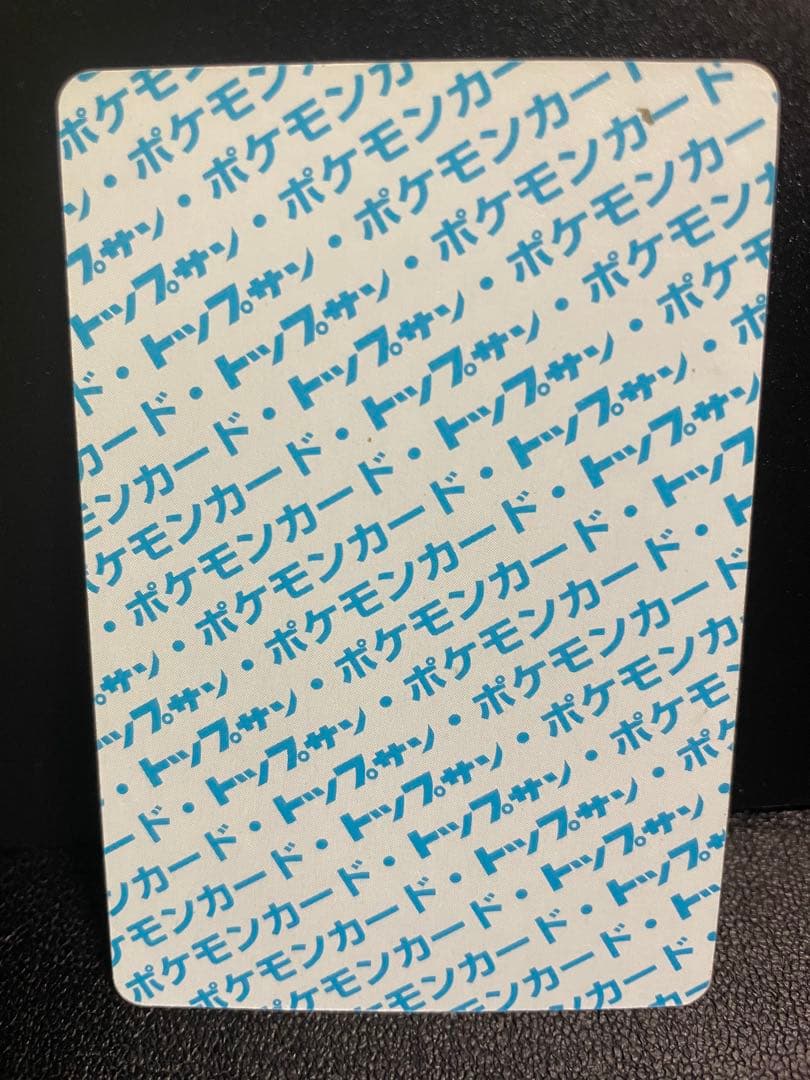 ポケモン
ン・ポケモンカ
プサン・ポケモンカ
トップサン・ポケモンカー
ド・トップサン・ポケモンカー
カード・トップサン・ポケモンカード
ンカード・トップサン・ポケモンカー
ケモンカード・トップサン・ポケモンカ
・ポケモンカード・トップサン・ポケモ
サン・ポケモンカード・トップサン・ポ
ップサン・ポケモンカード・トップサン
・トップサン・ポケモンカード・トップ
ード・トップサン・ポケモンカード・ト
ンカード・トップサン・ポケモンカード
ケモンカード・トップサン・ポケモンカ
ポケモンカード・トップサン・ポケモ
ケモンカード・トップサン・ポ
ポケモンカード・トップサン・
モンカード・トップサ
ンカード・トッ
カード・